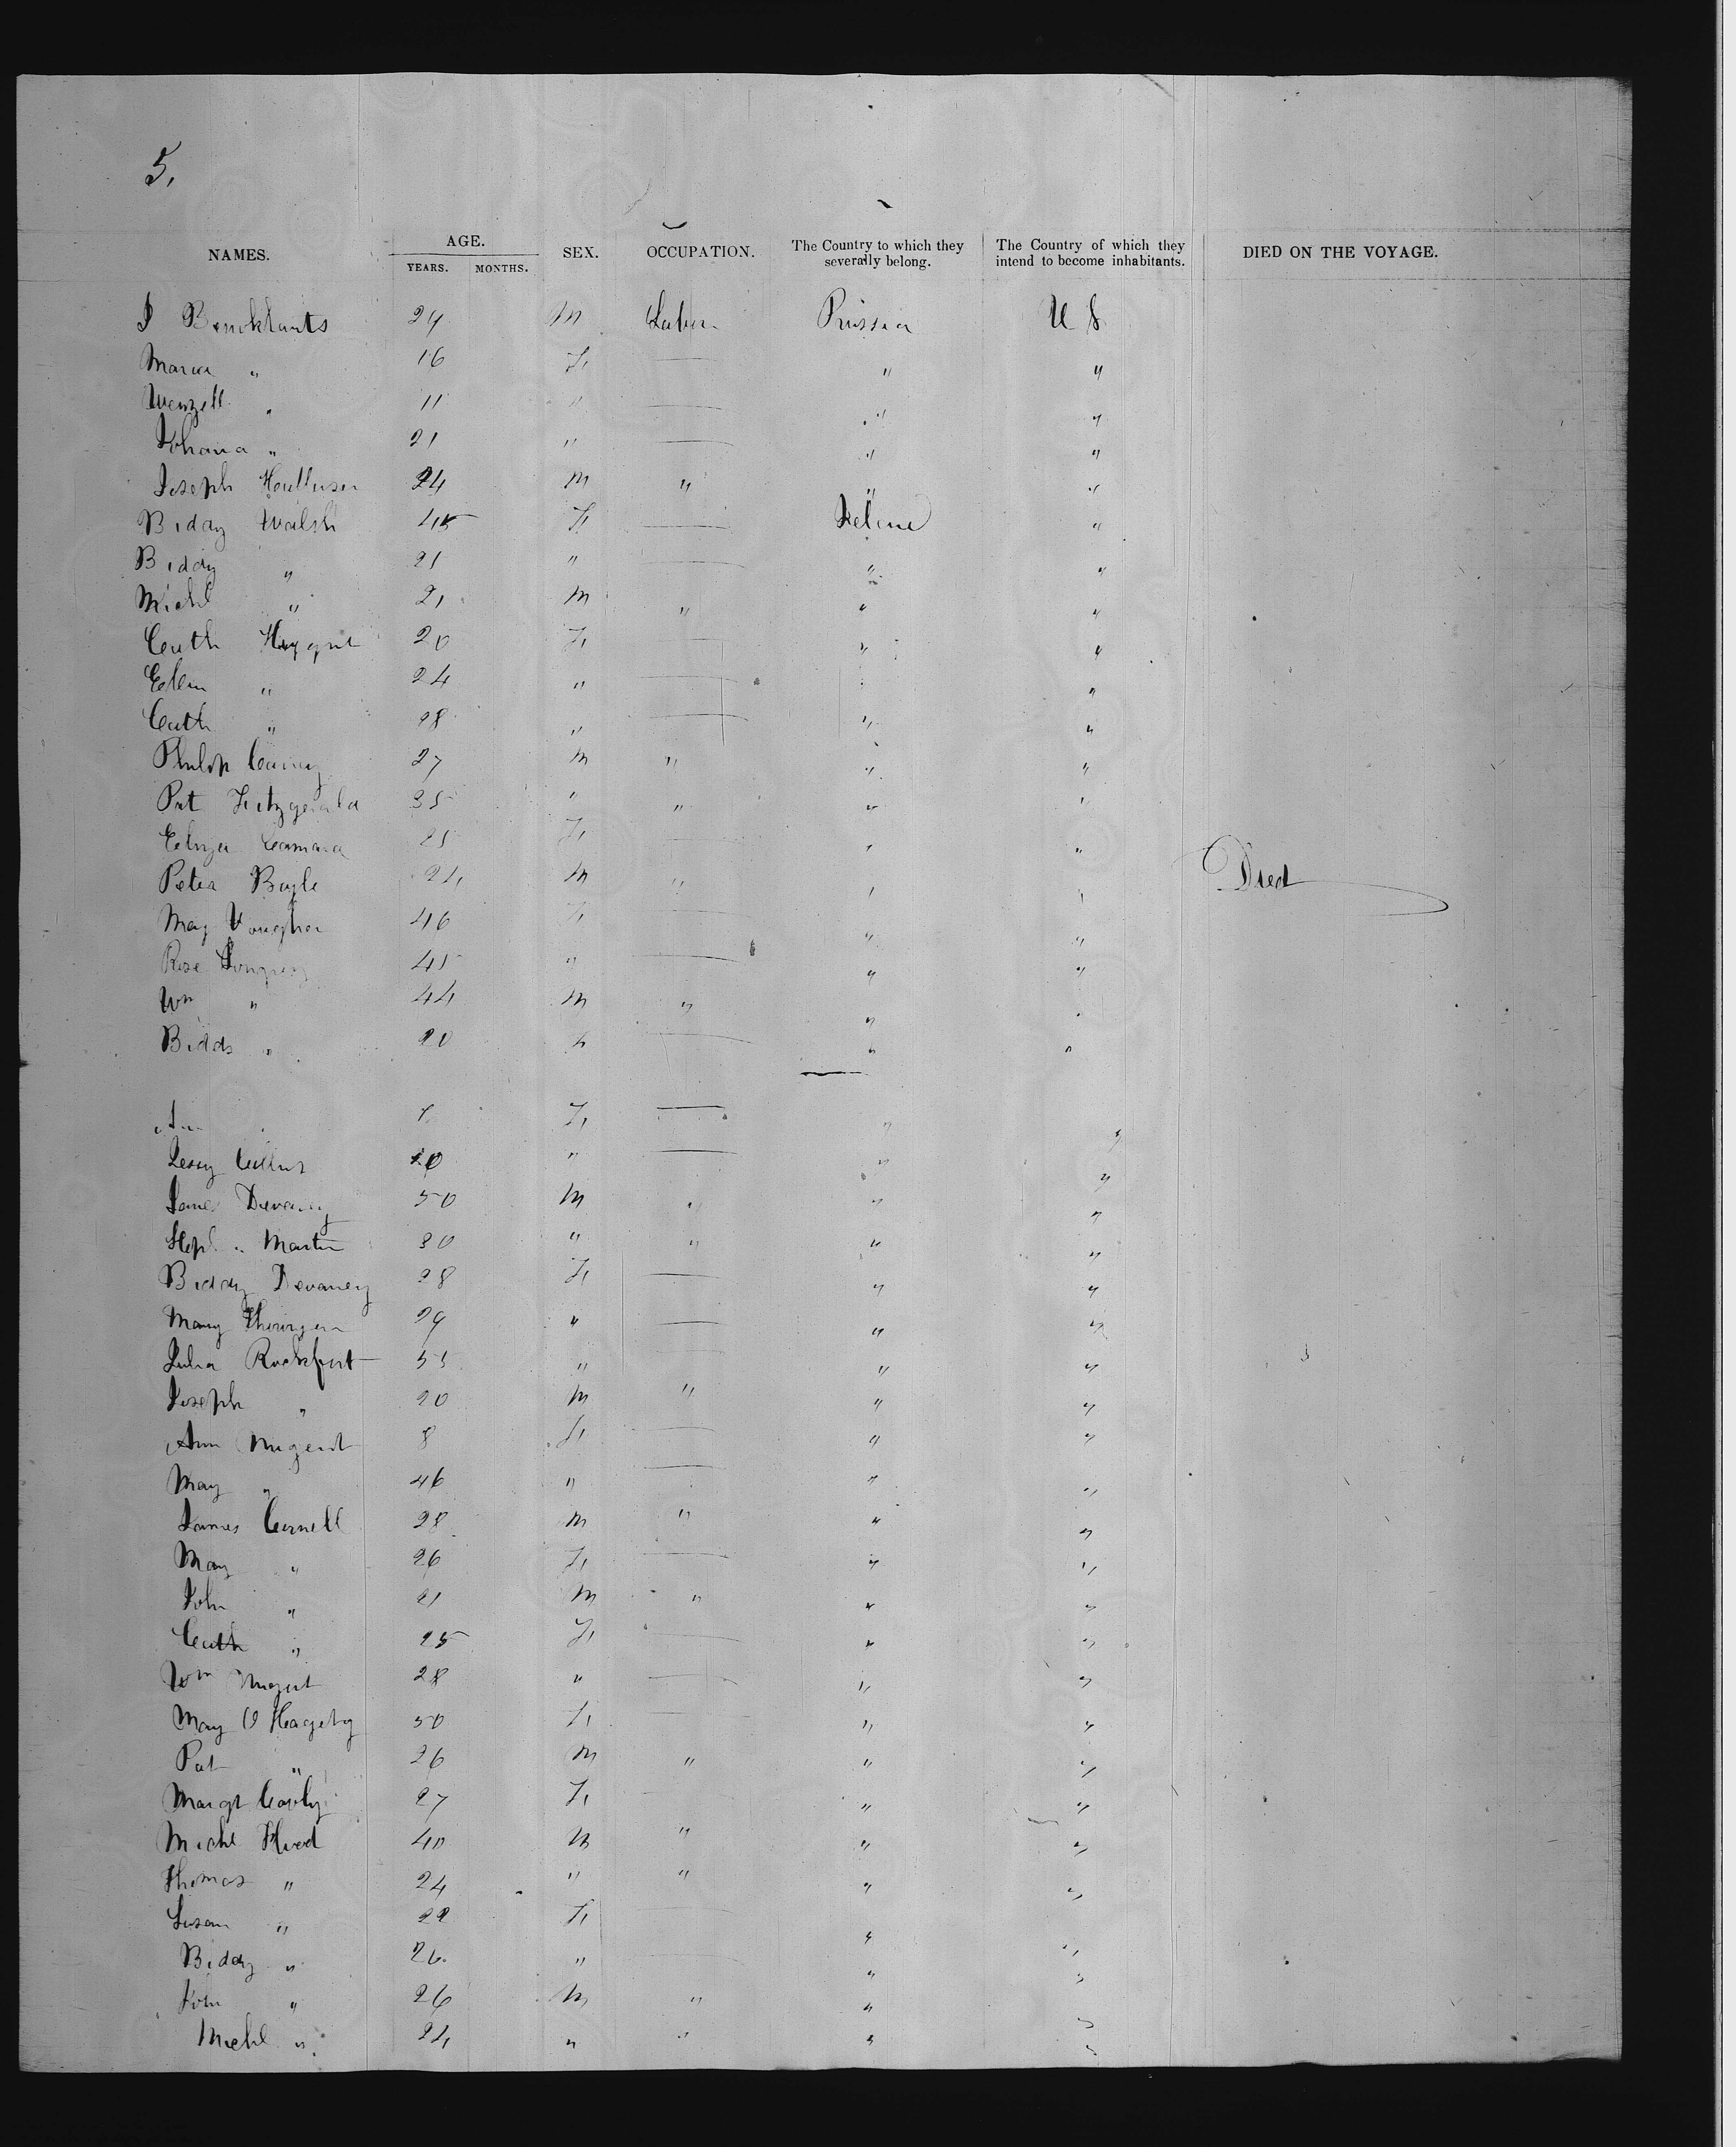 5,
NAMES. AGE. YEARS. MONTHS. SEX. OCCUPATION. The Country to which they severally belong. The Country of which they intend to become inhabitants. DIED ON THE VOYAGE.
J 24 M Labor Prussia U S
Maria " 16 F, — " "
Wenzell " 11 " — " "
Johana " 21 " — " "
Joseph 24 M " " "
Biday Walsh 45 F, — "
Biddy " 21 " — " "
Michl " 21 M " " "
Cath 20 F, — " "
Ellen " 24 " — "
Cath " 28 " — " "
Philip 27 M " " "
Pat Fitzgerald 35 " " " "
25 F, — " "
Peter Boyle 24 M " " " Died
May 46 F, — " "
Rose 45 " — " "
Wm " 44 M " " "
Bidds " 20 F — " "
F, — " "
20 " — " "
James Devaney 50 M " " "
Martin 30 " " " "
Biddy Devaney 28 F, — " "
Mary 29 " — " "
Julia Rockfort 55 " — " "
Joseph " 20 M " " "
Ann Nugent 8 F, — " "
May " 46 " — " "
James Cornell 28 M " " "
May " 26 F, — " "
John " 21 M " " "
Cath " 25 F, — " "
Wm Nugent 28 " — " "
May O Hagety 50 F, — " "
Pat " 26 M " " "
Margt 27 F, — " "
Michl 40 M " " "
Thomas " 24 " " " "
Susan " 22 F, — " "
Biddy " 26. " — " "
John " 26 M " " "
Michl " 24 " " " "